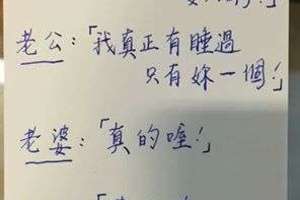 老公:「我真正有睡過
只有妳一個!」
老婆:「真的喔!」